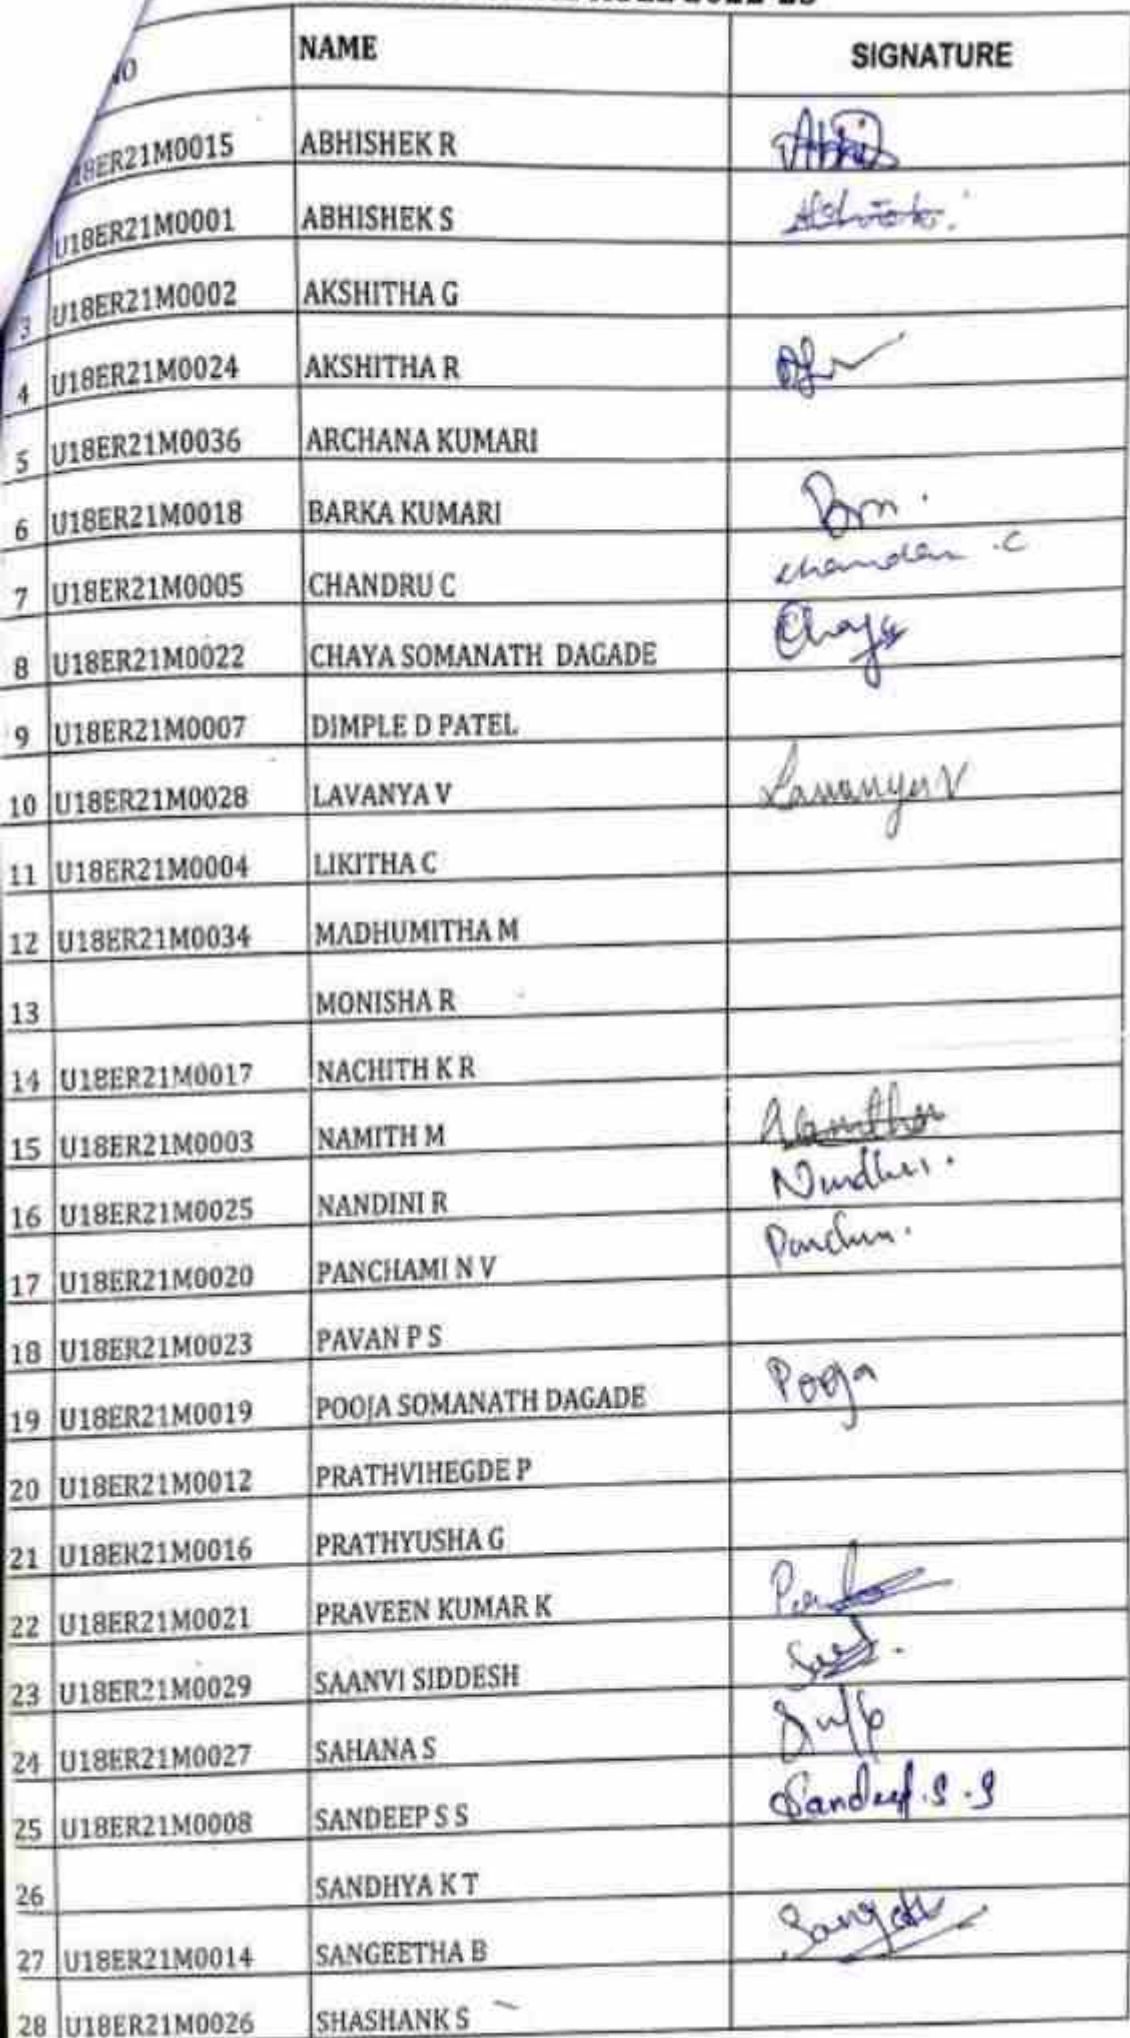 2022-23
NO NAME SIGNATURE
U18ER21M0015 ABHISHEK R Abhi
U18ER21M0001 ABHISHEK S
3 U18ER21M0002 AKSHITHA G
4 U18ER21M0024 AKSHITHA R
5 U18ER21M0036 ARCHANA KUMARI
6 U18ER21M0018 BARKA KUMARI
7 U18ER21M0005 CHANDRU C
8 U18ER21M0022 CHAYA SOMANATH DAGADE Chaya
9 U18ER21M0007 DIMPLE D PATEL
10 U18ER21M0028 LAVANYA V Lavanya V
11 U18ER21M0004 LIKITHA C
12 U18ER21M0034 MADHUMITHA M
13 MONISHA R
14 U18ER21M0017 NACHITH K R
15 U18ER21M0003 NAMITH M
16 U18ER21M0025 NANDINI R
17 U18ER21M0020 PANCHAMI N V
18 U18ER21M0023 PAVAN P S
19 U18ER21M0019 POOJA SOMANATH DAGADE Pooja
20 U18ER21M0012 PRATHVIHEGDE P
21 U18ER21M0016 PRATHYUSHA G
22 U18ER21M0021 PRAVEEN KUMAR K
23 U18ER21M0029 SAANVI SIDDESH
24 U18ER21M0027 SAHANA S
25 U18ER21M0008 SANDEEP S S Sandeep.S.S
26 SANDHYA K T
27 U18ER21M0014 SANGEETHA B
28 U18ER21M0026 SHASHANK S